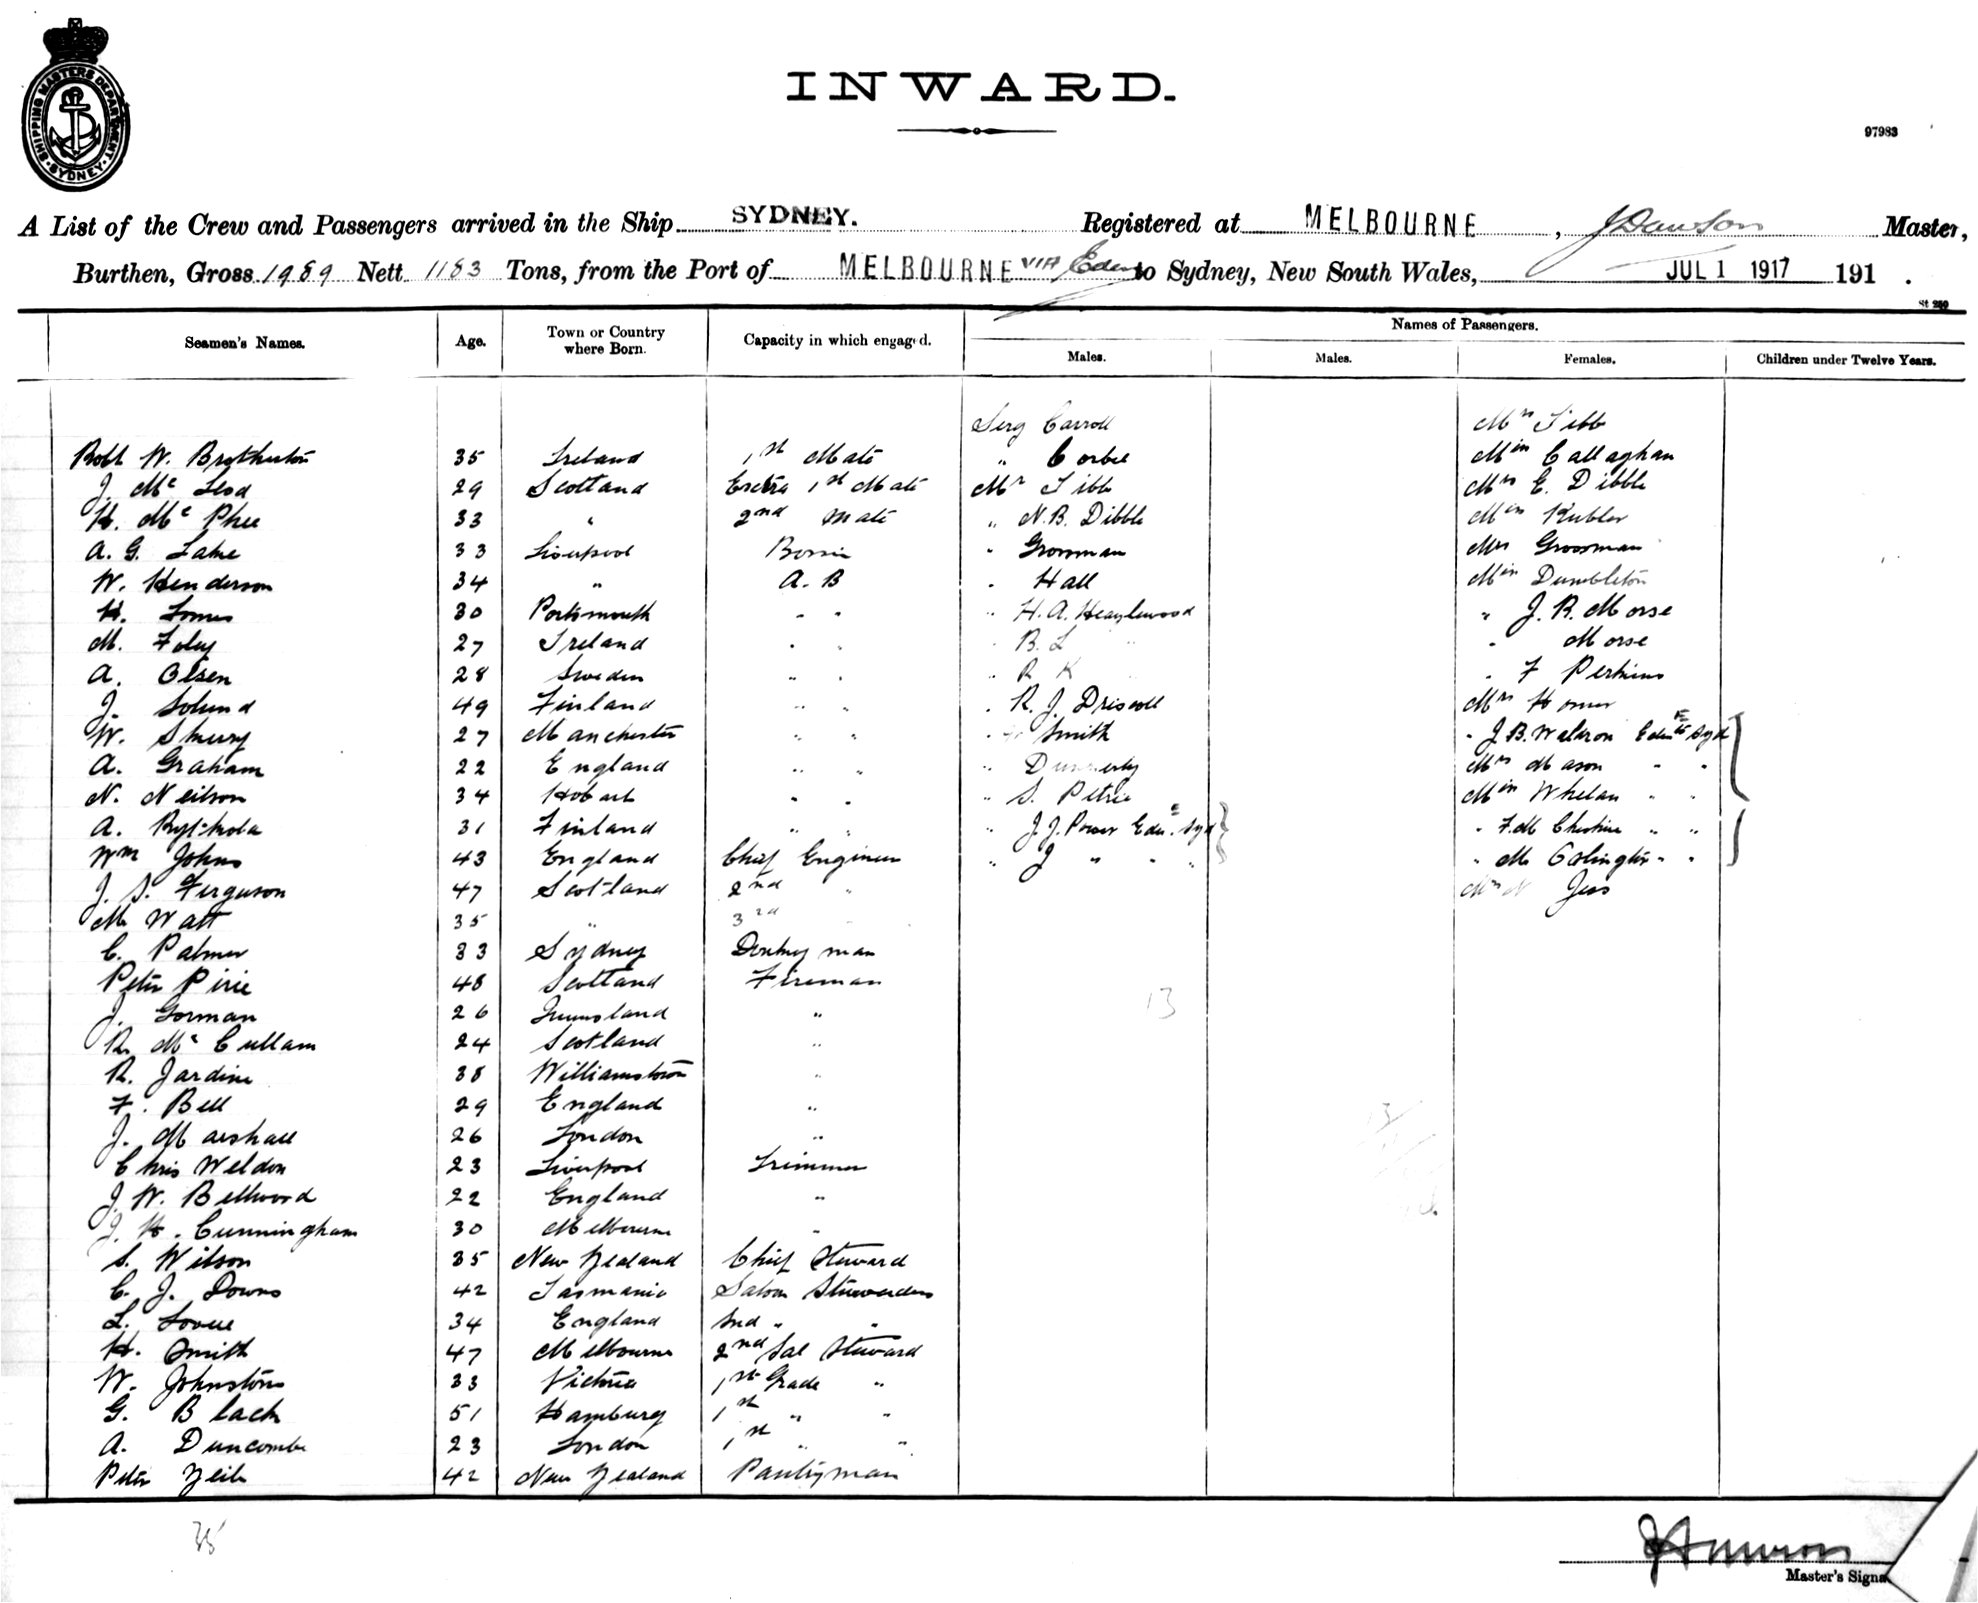 SHIPPING MASTERS DEPARTMENT
SYDNEY
INWARD.
97983
A List of the Crew and Passengers arrived in the Ship SYDNEY. Registered at MELBOURNE, J Dawson Master,
Burthen, Gross 1989 Nett 1183 Tons, from the Port of MELBOURNE VIA Eden to Sydney, New South Wales, JUL 1 1917 191 .
St 250
Seamen's Names. Age. Town or Country where Born. Capacity in which engaged. Names of Passengers.
Males. Males. Females. Children under Twelve Years.
Serg Carroll Mrs Tibb
Robt W. Brotherton 35 Ireland 1st Mate " Corbel Miss Callaghan
J. Mc Leod 29 Scotland Extra 1st Mate Mr Tibb Mrs E. Dibble
H. Mc Phee 33 " 2nd Mate " N. B. Dibble Miss Kubler
A. G. Lake 33 Liverpool " Grossman Mrs Grossman
W. Henderson 34 " A. B " Hall Miss Dumbleton
H. 30 Portsmouth " " " H. A. Heazlewood " J. R. Morse
M. Foley 27 Ireland " " " B. L " " Morse
A. Olsen 28 Sweden " " " R K " F Perkins
J. 49 Finland " " " R. J. Driscoll Mrs Homer
W. 27 Manchester " " " Smith " J. B. Waldron Eden to Syd
A. Graham 22 England " " " Mrs Mason " "
N. Neilson 34 Hobart " " " S. Petrie Miss Whelan " "
A. 31 Finland " " " J. J. Power Eden Syd " F. M " "
Wm Johns 43 England Chief Engineer " J " " " " M " "
J. S. Ferguson 47 Scotland 2nd " Jess
M Watt 35 " 3rd "
C. Palmer 33 Sydney Donkeyman
Peter Pirie 48 Scotland Fireman
J. Gorman 26 Queensland "
13
R. Mc Cullam 24 Scotland "
R. Jardine 38 Williamstown "
F. Bell 29 England "
J. Marshall 26 London "
Chris Weldon 23 Liverpool Trimmer
J. W. Bellwood 22 England "
J. H. Cunningham 30 Melbourne "
S. Wilson 35 New Zealand Chief Steward
C. J. Downs 42 Tasmania Saloon Stewardess
L. 34 England 2nd " "
H. Smith 47 Melbourne 2nd Sal Steward
W. Johnstone 33 Victoria 1st Grade "
G. Black 51 Hamburg 1st " "
A. Duncombe 23 London 1st " "
Peter 42 New Zealand Pantryman
35
J Dawson
Master's Signa